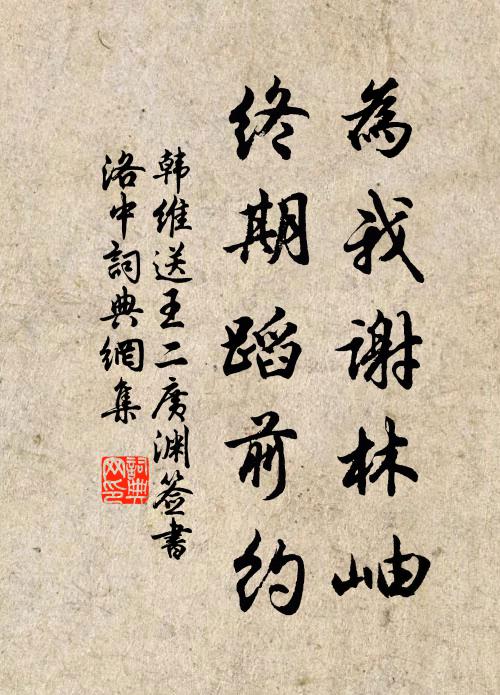 為我谢林岫
终期蹈前约
韩维送王二廣渊签書
洛中詞典網集
詞典
网印